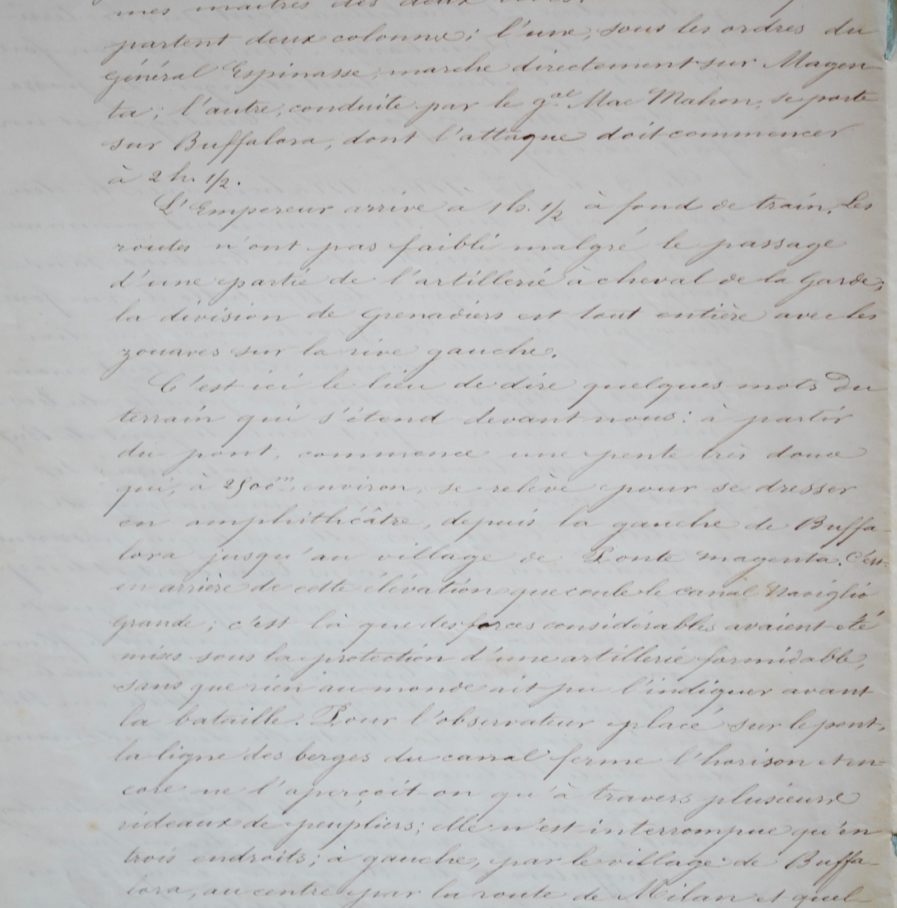 mes maîtres des deux rives.
partent deux colonnes; l'une, sous les ordres du
Général Espinasse, marche directement sur Magen
ta; l'autre, conduite par le gal Mac Mahon, se porte
sur Buffalora, dont l'attaque doit commencer
à 2 h. 1/2.
L'Empereur arrive a 1 h. 1/2 à fond de train. Les
routes n'ont pas faibli malgré le passage
d'une partie de l'artillerie à cheval de la Garde,
la division de Grenadiers est tout entière avec les
zouaves sur la rive gauche.
C'est ici le lieu de dire quelques mots du
terrain qui s'étend devant nous: à partir
du pont, commence une pente très douce
qui, à environ, se relève pour se dresser
en amphithéâtre, depuis la gauche de Buffa-
lora jusqu'au village de Ponte Magenta. C'est
en arrière de cette élévation que coule le canal Naviglio
Grande; c'est là que des forces considérables avaient été
mises sous la protection d'une artillerie formidable,
sans que rien au monde ait pu l'indiquer avant
la bataille. Pour l'observateur placé sur le pont,
la ligne des berges du canal ferme l'horison et en-
core ne l'aperçoit-on qu'à travers plusieurs
rideaux de peupliers; elle n'est interrompue qu'en
trois endroits; à gauche, par le village de Buffa-
lora, au centre par la route de Milan et quel